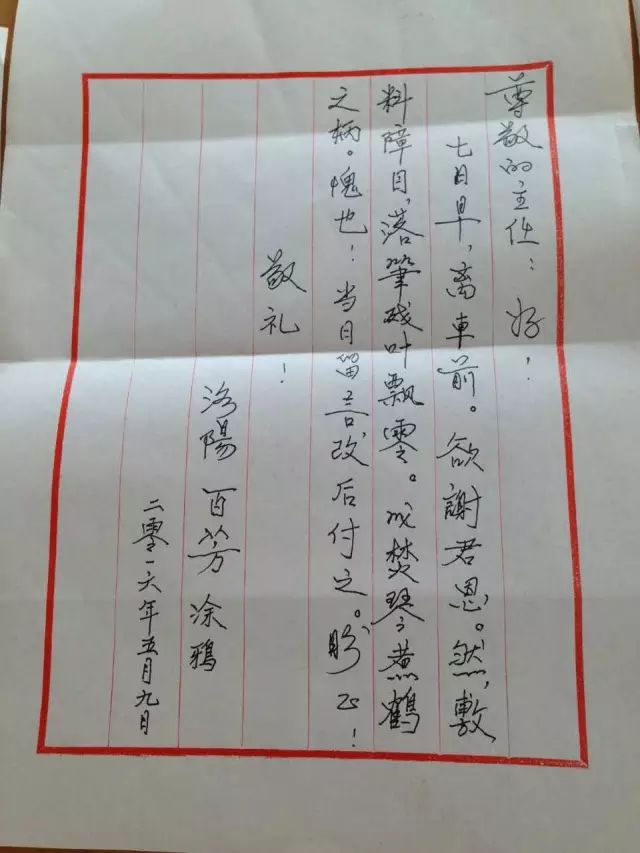 尊敬的主任：好！
七日早，离車前。欲謝君恩。然，敷
料障目，落筆残叶飘零。成焚琴煮鶴
之柄。愧也！当日留言改后付之。盼正！
敬礼！
洛陽 百芳 涂鴉
二零一六年五月九日